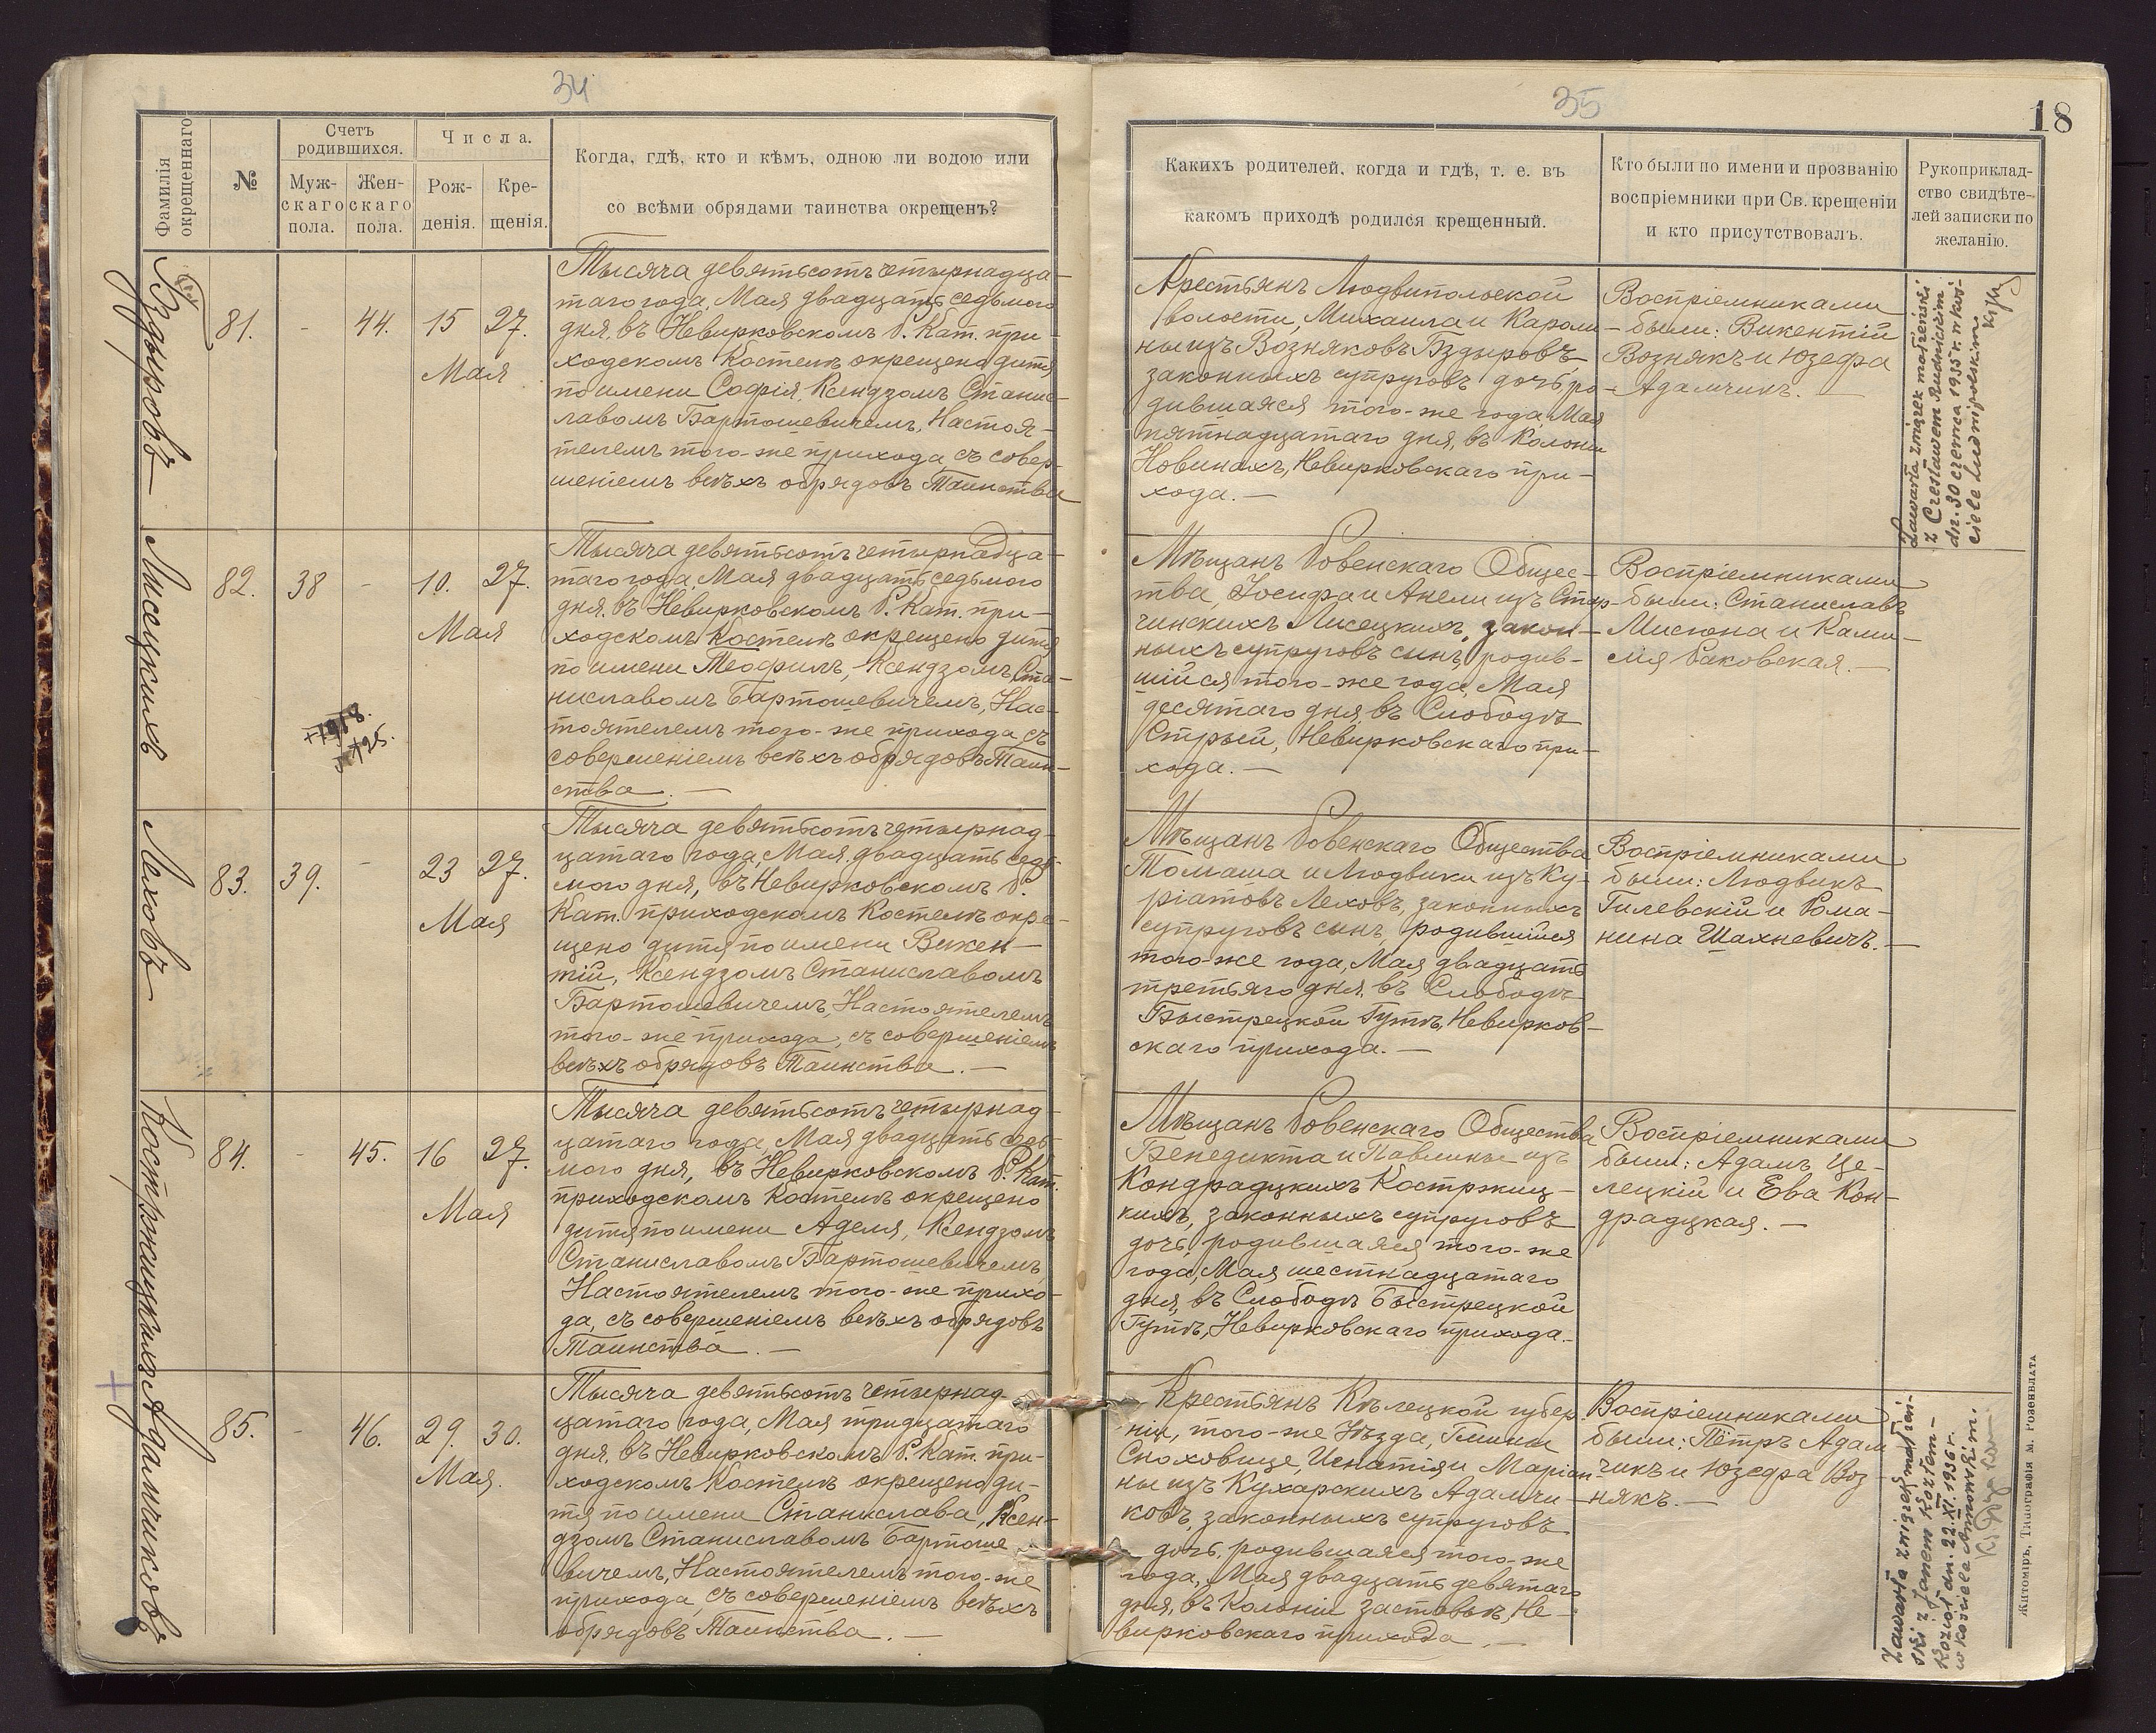 34
Фамилія окрещеннаго
№
Счетъ родившихся.
Муж-
скаго
пола.
Жен-
скаго
пола.
Числа.
Рож-
денія.
Кре-
щенія.
Когда, гдѣ, кто и кѣмъ, одною ли водою или
со всѣми обрядами таинства окрещенъ?
Бздыровъ
81.
-
44.
15
27.
Мая
Тысяча девятьсотъ четырнадца-
таго года, Мая двадцать седьмого
дня, въ Невирковскомъ Р. Кат. при-
ходскомъ Костелѣ окрещено дитя
по имени Софія, Ксендзомъ Станис-
лавомъ Бартошевичемъ, Настоя-
телемъ того-же прихода, съ совер-
шеніемъ всѣхъ обрядовъ Таинства
Лисецкихъ
82.
38
-
10.
27.
Мая
+1918.
Тысяча девятьсотъ четырнадца-
таго года, Мая двадцать седьмого
дня, въ Невирковскомъ Р. Кат. при-
ходскомъ Костелѣ окрещено дитя
по имени Теофилъ, Ксендзомъ Ста-
ниславомъ Бартошевичемъ, Нас-
тоятелемъ того-же прихода, съ
совершеніемъ всѣхъ обрядовъ Таин-
ства. —
Леховъ
83.
39.
-
23
27.
Мая
Тысяча девятьсотъ четырнад-
цатаго года, Мая двадцать седь-
мого дня, въ Невирковскомъ Р.
Кат. приходскомъ Костелѣ окре-
щено дитя по имени Викен-
тій, Ксендзомъ Станиславомъ
Бартошевичемъ, Настоятелемъ
того-же прихода, съ совершеніемъ
всѣхъ обрядовъ Таинства. —
Костржицкихъ
84.
-
45.
16
27.
Мая
Тысяча девятьсотъ четырнад-
цатаго года, Мая двадцать седь-
мого дня, въ Невирковскомъ Р. Кат.
приходскомъ Костелѣ окрещено
дитя по имени Аделя, Ксендзомъ
Станиславомъ Бартошевичемъ,
Настоятелемъ того-же прихо-
да, съ совершеніемъ всѣхъ обрядовъ
Таинства. —
Адамчиковъ
85.
-
46.
29.
30.
Мая.
Тысяча девятьсотъ четырнад
цатаго года, Мая тридцатаго
дня, въ Невирковскомъ Р. Кат. при-
ходскомъ Костелѣ окрещено ди-
тя по имени Станислава, Ксен-
дзомъ Станиславомъ Бартоше
вичемъ, Настоятелемъ того-же
прихода, съ совершеніемъ всѣхъ
обрядовъ Таинства. —
35
18
Какихъ родителей, когда и гдѣ, т. е. въ
какомъ приходѣ родился крещенный.
Кто были по имени и прозванію
воспріемники при Св. крещеніи
и кто присутствовалъ.
Рукоприклад-
ство свидѣте-
лей записки по
желанію.
Крестьянъ Людвипольской
волости, Михаила и Кароли-
ны изъ Возняковъ Бздыровъ
законныхъ супруговъ дочь, ро-
дившаяся того-же года, Мая
пятнадцатаго дня, въ Колоніи
Новинахъ, Невирковскаго при-
хода. —
Воспріемниками
были: Викентій
Вознякъ и Юзефа
Адамчикъ. —
Zawarła związek małżeński
z Czesławem Rudnickim
dn. 30 czerwca 1935 r. w koś-
ciele Ludwipolskim
Мѣщанъ Ровенскаго Общес-
тва, Іосифа и Анели изъ Стар-
чинскихъ Лисецкихъ, закон-
ныхъ супруговъ сынъ, родив-
шійся того-же года, Мая
десятаго дня, въ Слободѣ
Стрый, Невирковскаго при-
хода. —
Воспріемниками
были: Станиславъ
Мисюна и Ками-
лія Раковская. —
Мѣщанъ Ровенскаго Общества
Томаша и Людвики изъ Ку-
ріатовъ Леховъ, законныхъ
супруговъ сынъ, родившійся
того-же года, Мая двадцать
третьяго дня, въ Слободѣ
Быстрецкой Гутѣ, Невирков-
скаго прихода. —
Воспріемниками
были: Людвикъ
Гилевскій и Рома-
нина Шахневичъ. —
Мѣщанъ Ровенскаго Общества
Бенедикта и Павлины изъ
Кондрацкихъ Костржиц-
кихъ, законныхъ супруговъ
дочь, родившаяся того-же
года, Мая шестнадцатаго
дня, въ Слободѣ Быстрецкой
Гутѣ, Невирковскаго прихода. —
Воспріемниками
были: Адамъ Це-
лецкій и Ева Кон-
драцкая. —
Крестьянъ Кѣлецкой губер-
ніи, того-же Уѣзда, Гмины
Сноховице, Игнатія и Маріан-
ны изъ Кухарскихъ Адамчи-
ковъ, законныхъ супруговъ
дочь, родившаяся того-же
года, Мая двадцать девятаго
дня, въ Колоніи Заставье, Не-
вирковскаго прихода. —
Воспріемниками
были: Пётръ Адам
чикъ и Юзефа Воз
някъ. —
Zawarła związek małżeń-
ski z Janem Kozłem
dn. 22.XI.1936 r.
w kościele
Житомиръ, Типографія М. Розенблата